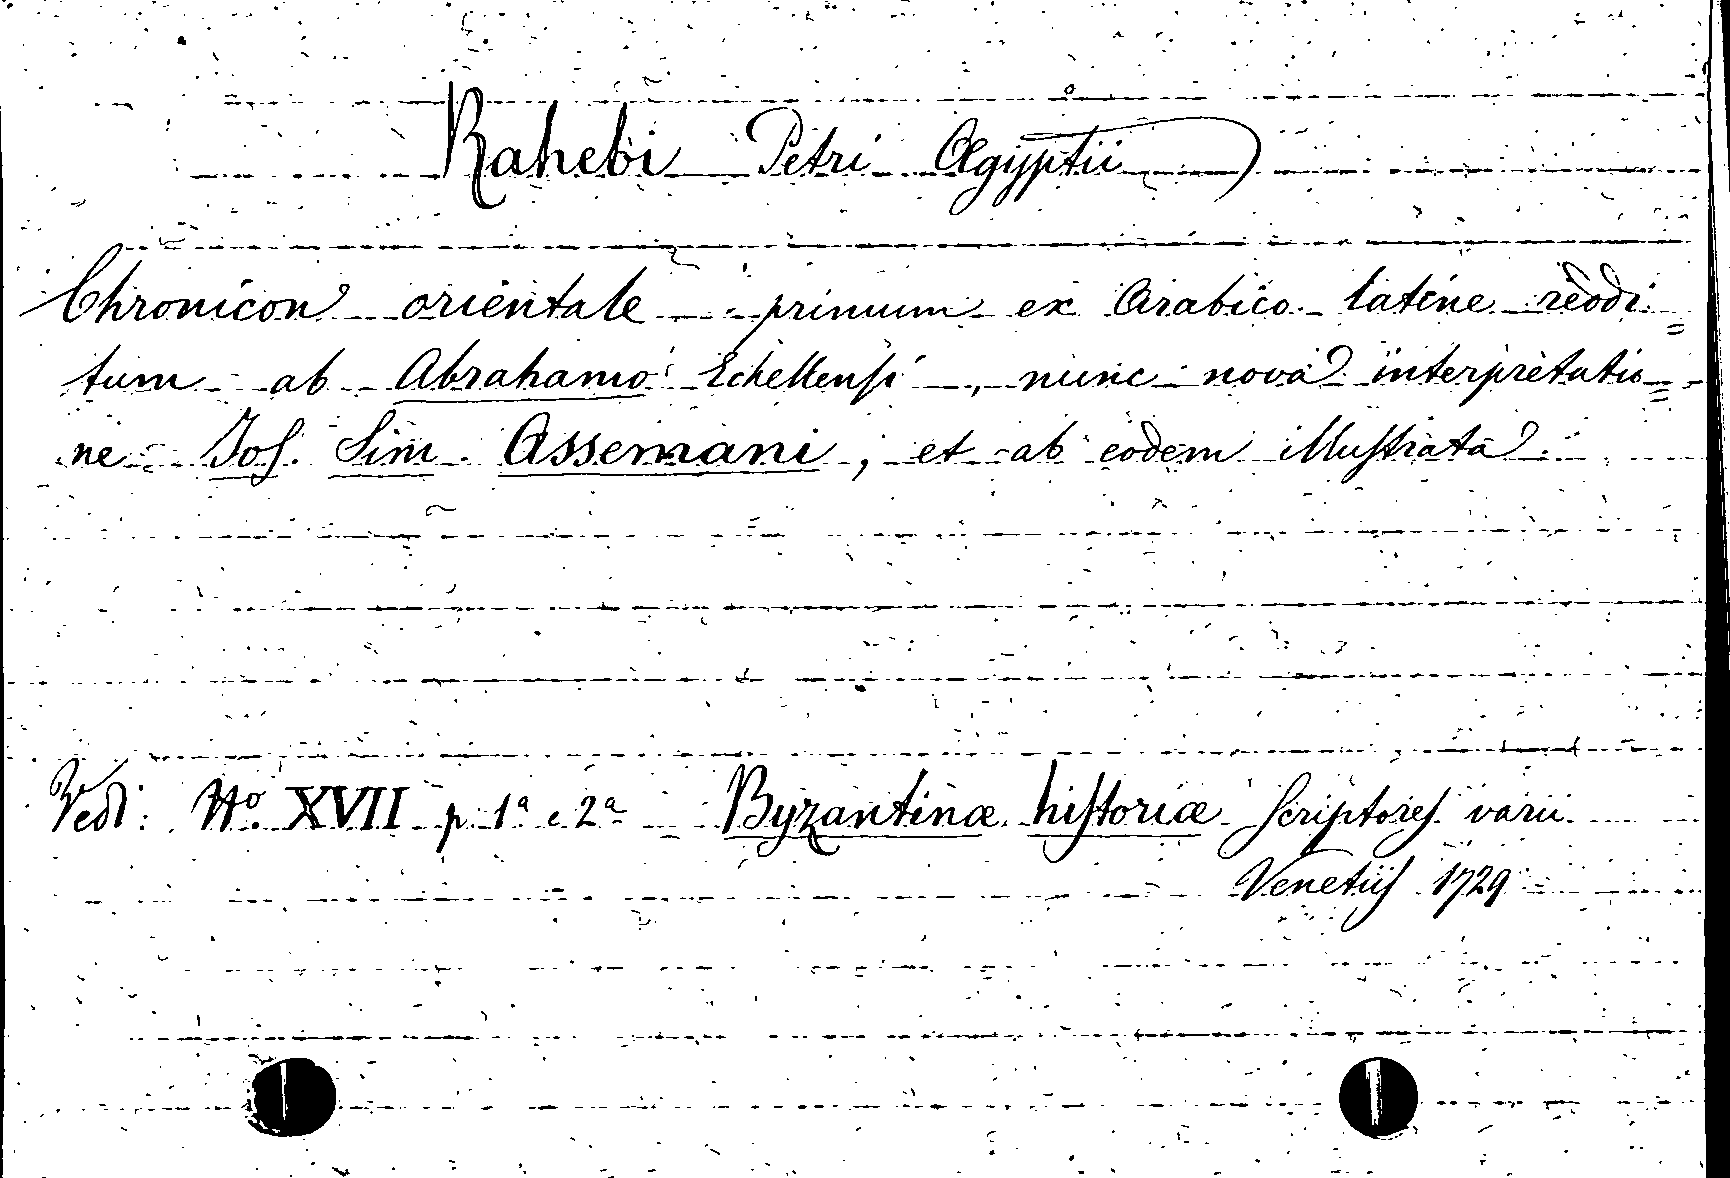 Rahebi Petri Ægyptii
Chronicon orientale primum ex Arabico latine reddi=
tum ab Abrahamo Echellensi, nunc nova interpretatio=
ne Jos. Sim. Assemani, et ab eodem illustrata.
Vedi: No. XVII p. 1a e 2a Byzantinæ historiæ Scriptores varii.
Venetiis 1729